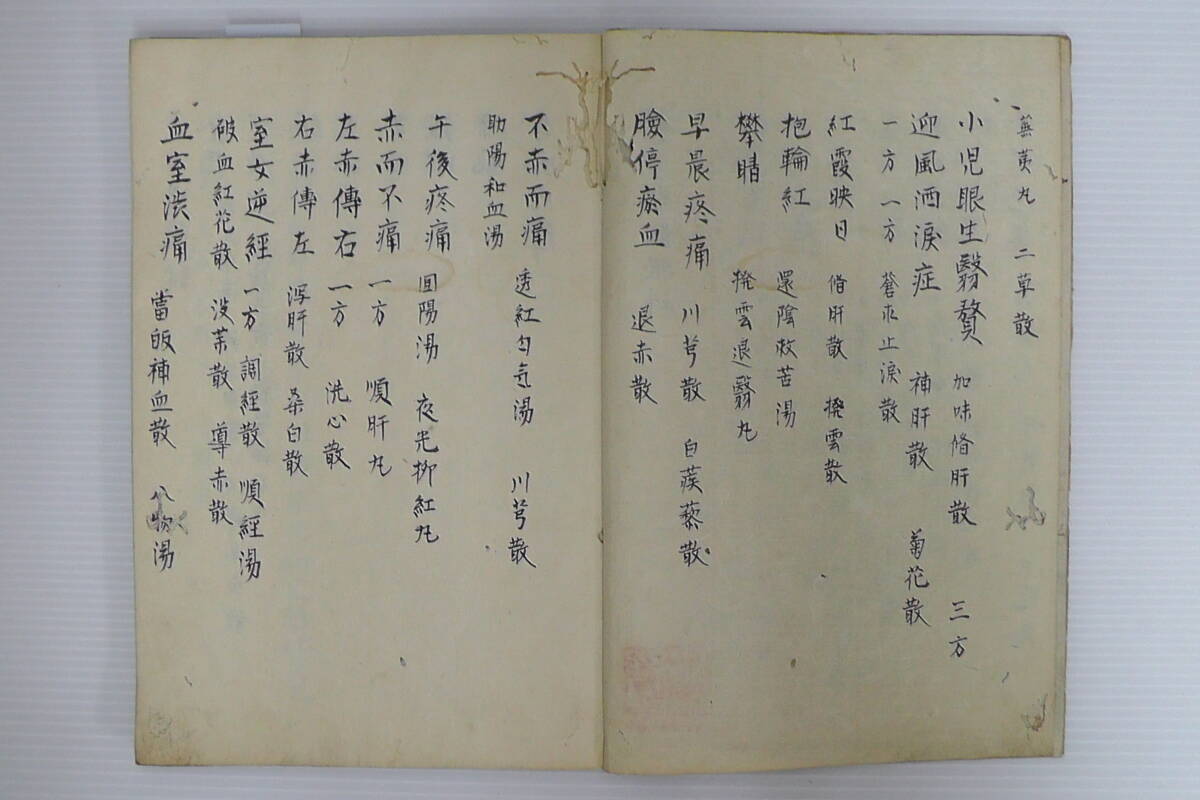 蕪荑丸 二草散
小児眼生翳贅 加味脩肝散 三方
迎風洒淚症 補肝散 菊花散
一方 一方 蒼朮止淚散
紅霞映日 脩肝散 撥雲散
抱輪紅 還陰救苦湯
攀睛 撥雲退翳丸
早晨疼痛 川芎散 白蒺藜散
瞼停瘀血 退赤散
不赤而痛 透紅匀気湯 川芎散
助陽和血湯
午後疼痛 回陽湯 夜光柳紅丸
赤而不痛 一方 順肝丸
左赤傳右 一方 洗心散
右赤傳左 瀉肝散 桑白散
室女逆經 一方 調經散 順經湯
破血紅花散 没藥散 導赤散
血室澁痛 當皈補血散 八物湯